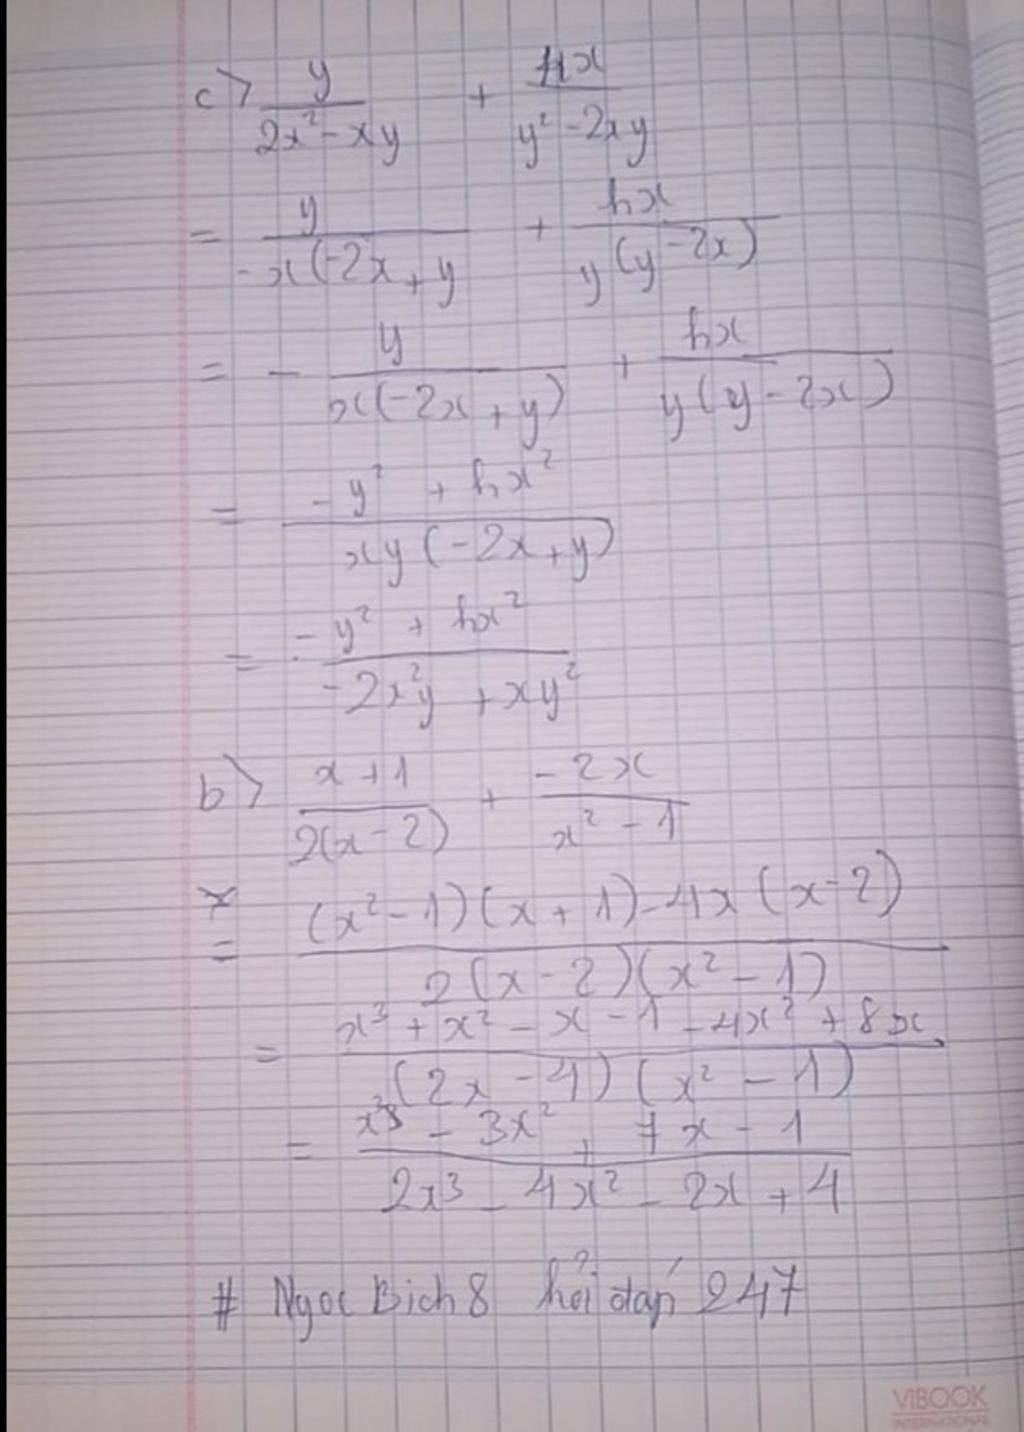 c> y/(2x² - xy) + 4x/(y² - 2xy)
= y/(-x(-2x + y) + 4x/(y(y - 2x))
= - y/(x(-2x + y)) + 4x/(y(y - 2x))
= (-y² + 4x²)/(xy(-2x + y))
= (-y² + 4x²)/(-2x²y + xy²)
b> (x + 1)/(2(x - 2)) + (-2x)/(x² - 1)
= ((x² - 1)(x + 1) - 4x(x - 2))/(2(x - 2)(x² - 1))
= (x³ + x² - x - 1 - 4x² + 8x)/((2x - 4)(x² - 1))
= (x³ - 3x² + 7x - 1)/(2x³ - 4x² - 2x + 4)
# Ngoc Bich 8 hỏi đáp 247
VIBOOK
INTERNATIONAL